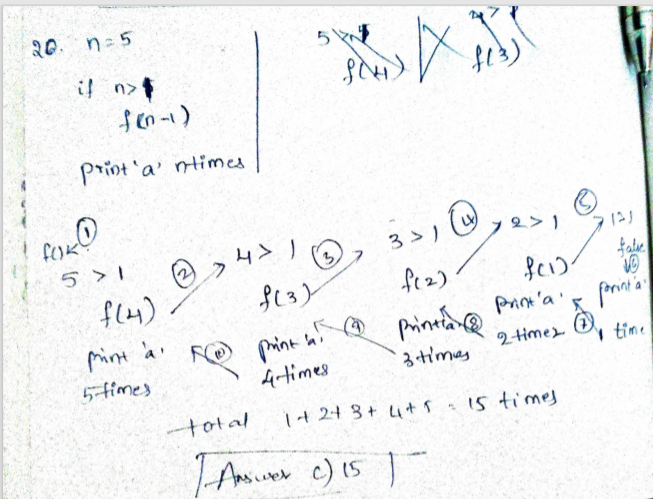 20. n=5
if n>1
f(n-1)
print 'a' n times
5>
f(4)
f(3)
①
5 > 1
f(4)
print 'a'
5 times
②
4 > 1
f(3)
print 'a'
4 times
③
3 > 1
f(2)
print 'a'
3 times
④
2 > 1
f(1)
print 'a'
2 times
⑤
1>1
false
⑥
print 'a'
1 time
⑦
⑧
⑨
⑩
total 1+2+3+4+5 = 15 times
Answer c) 15